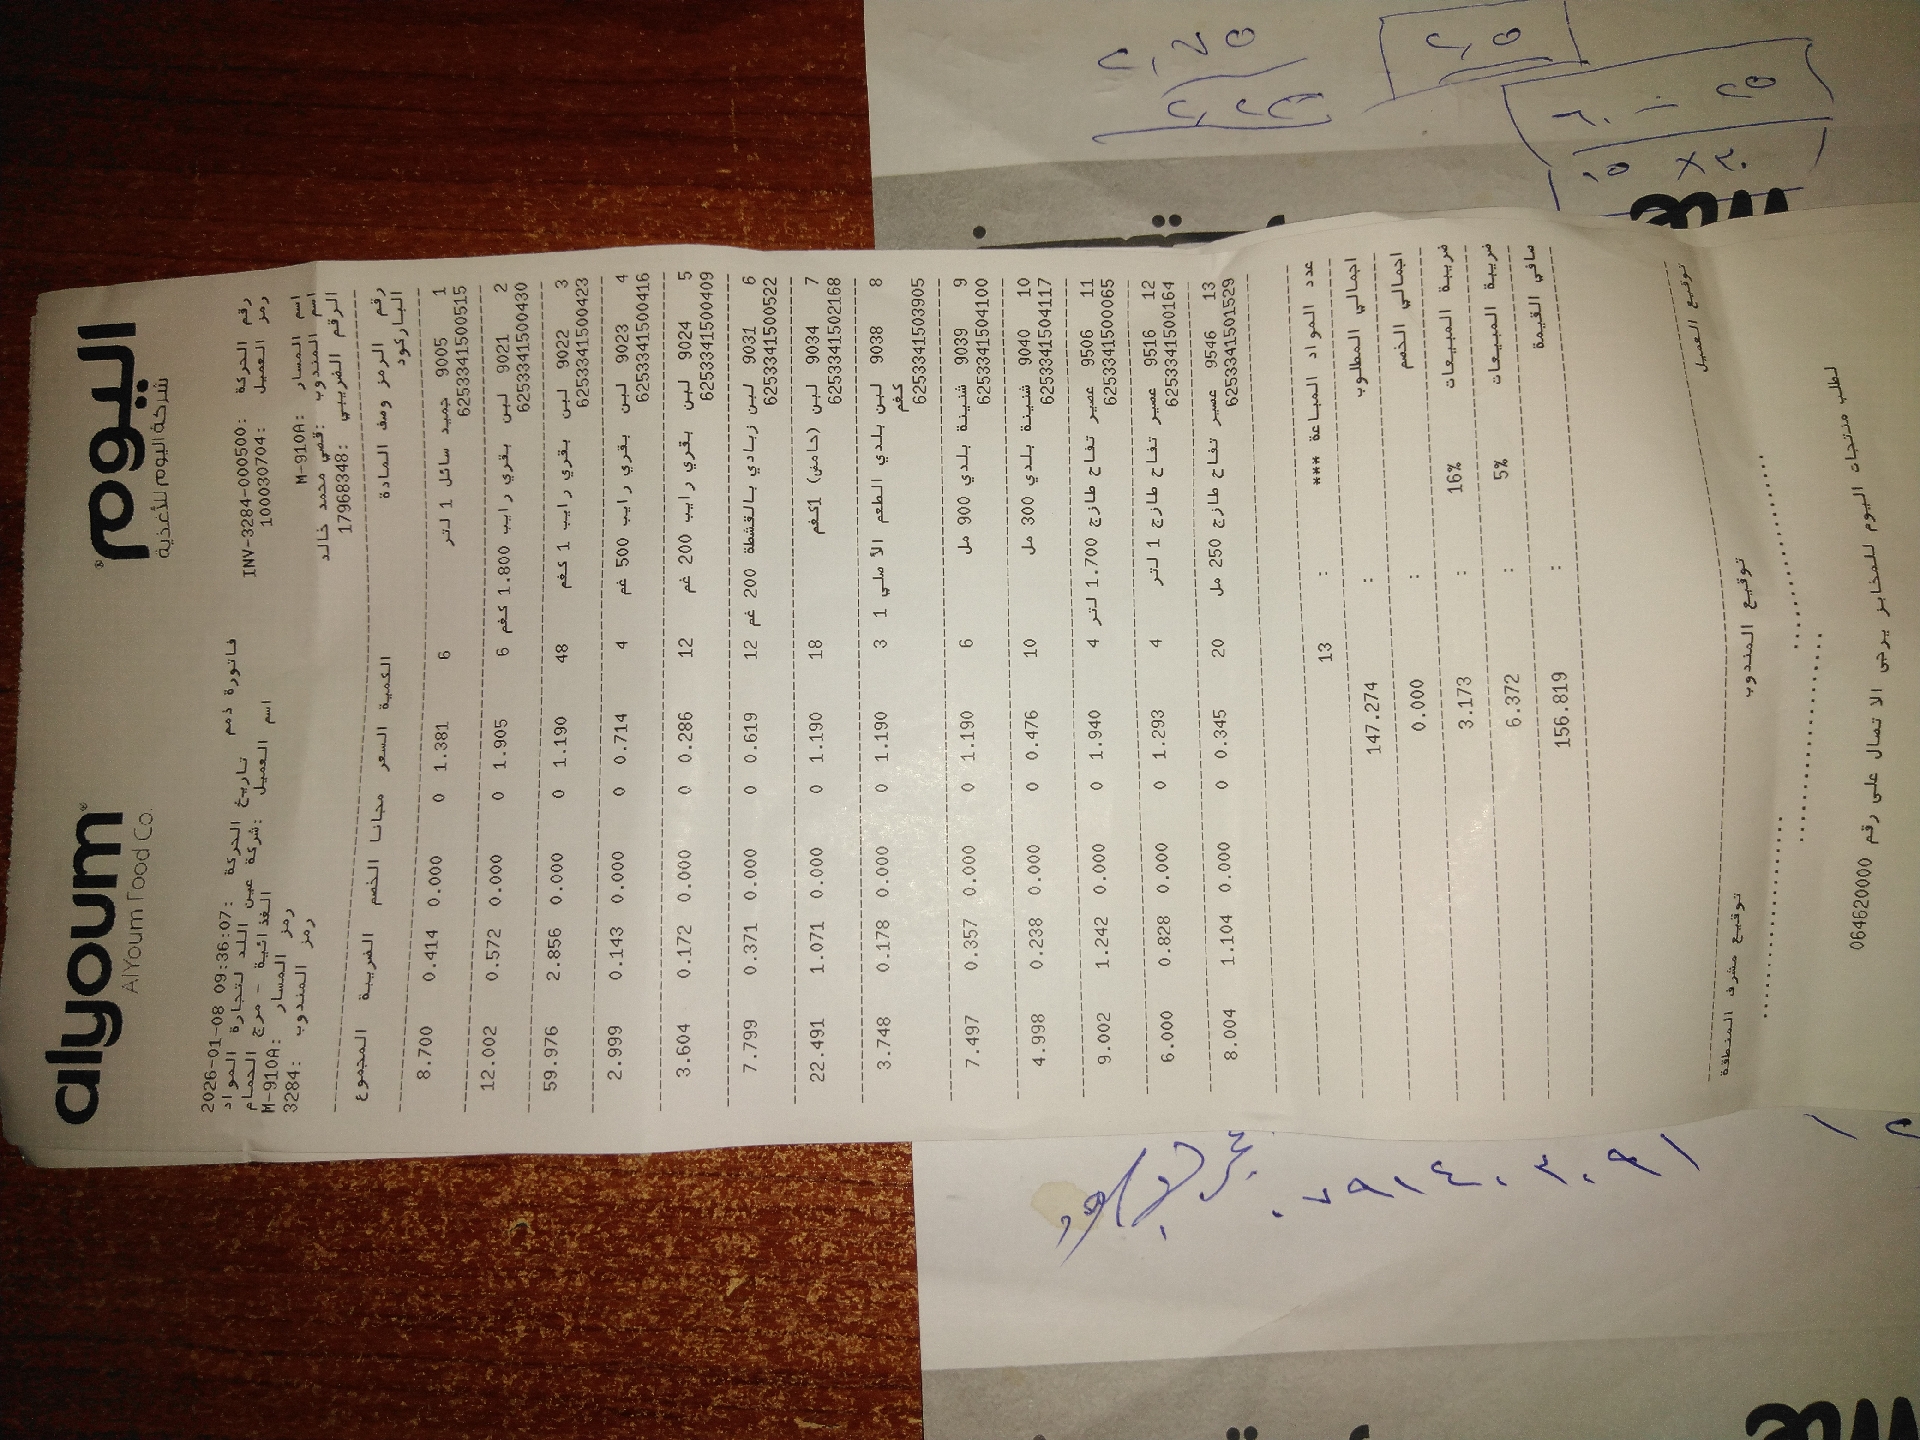 alyoum اليوم
AlYoum Food Co. شركة اليوم للأغذية
فاتورة ذمم
رقم الحركة :INV-3284-000500 تاريخ الحركة :2026-01-08 09:36:07
رمز العميل :100030704 اسم العميل :شركة عين اللد لتجارة المواد
الغذائية - مرج الحمام
اسم المسار :M-910A رمز المسار :M-910A
اسم المندوب :قصي محمد خالد رمز المندوب :3284
الرقم الضريبي :17968348
رقم الرمز وصف المادة الكمية السعر مجانا الخصم الضريبة المجموع
الباركود
1 9005 جميد سائل 1 لتر 6 1.381 0 0.000 0.414 8.700
6253341500515
2 9021 لبن بقري رايب 1.800 كغم 6 1.905 0 0.000 0.572 12.002
6253341500430
3 9022 لبن بقري رايب 1 كغم 48 1.190 0 0.000 2.856 59.976
6253341500423
4 9023 لبن بقري رايب 500 غم 4 0.714 0 0.000 0.143 2.999
6253341500416
5 9024 لبن بقري رايب 200 غم 12 0.286 0 0.000 0.172 3.604
6253341500409
6 9031 لبن زبادي بالقشطة 200 غم 12 0.619 0 0.000 0.371 7.799
6253341500522
7 9034 لبن (حامض) 1كغم 18 1.190 0 0.000 1.071 22.491
6253341502168
8 9038 لبن بلدي الطعم الأصلي 1 3 1.190 0 0.000 0.178 3.748
كغم
6253341503905
9 9039 شنينة بلدي 900 مل 6 1.190 0 0.000 0.357 7.497
6253341504100
10 9040 شنينة بلدي 300 مل 10 0.476 0 0.000 0.238 4.998
6253341504117
11 9506 عصير تفاح طازج 1.700 لتر 4 1.940 0 0.000 1.242 9.002
6253341500065
12 9516 عصير تفاح طازج 1 لتر 4 1.293 0 0.000 0.828 6.000
6253341500164
13 9546 عصير تفاح طازج 250 مل 20 0.345 0 0.000 1.104 8.004
6253341501529
عدد المواد المباعة *** : 13
اجمالي المطلوب : 147.274
اجمالي الخصم : 0.000
ضريبة المبيعات 16% : 3.173
ضريبة المبيعات 5% : 6.372
صافي القيمة : 156.819
توقيع العميل توقيع المندوب توقيع مشرف المنطقة
لطلب منتجات اليوم للمخابز يرجى الاتصال على رقم 064620000
٢,٧٥
٢,٥